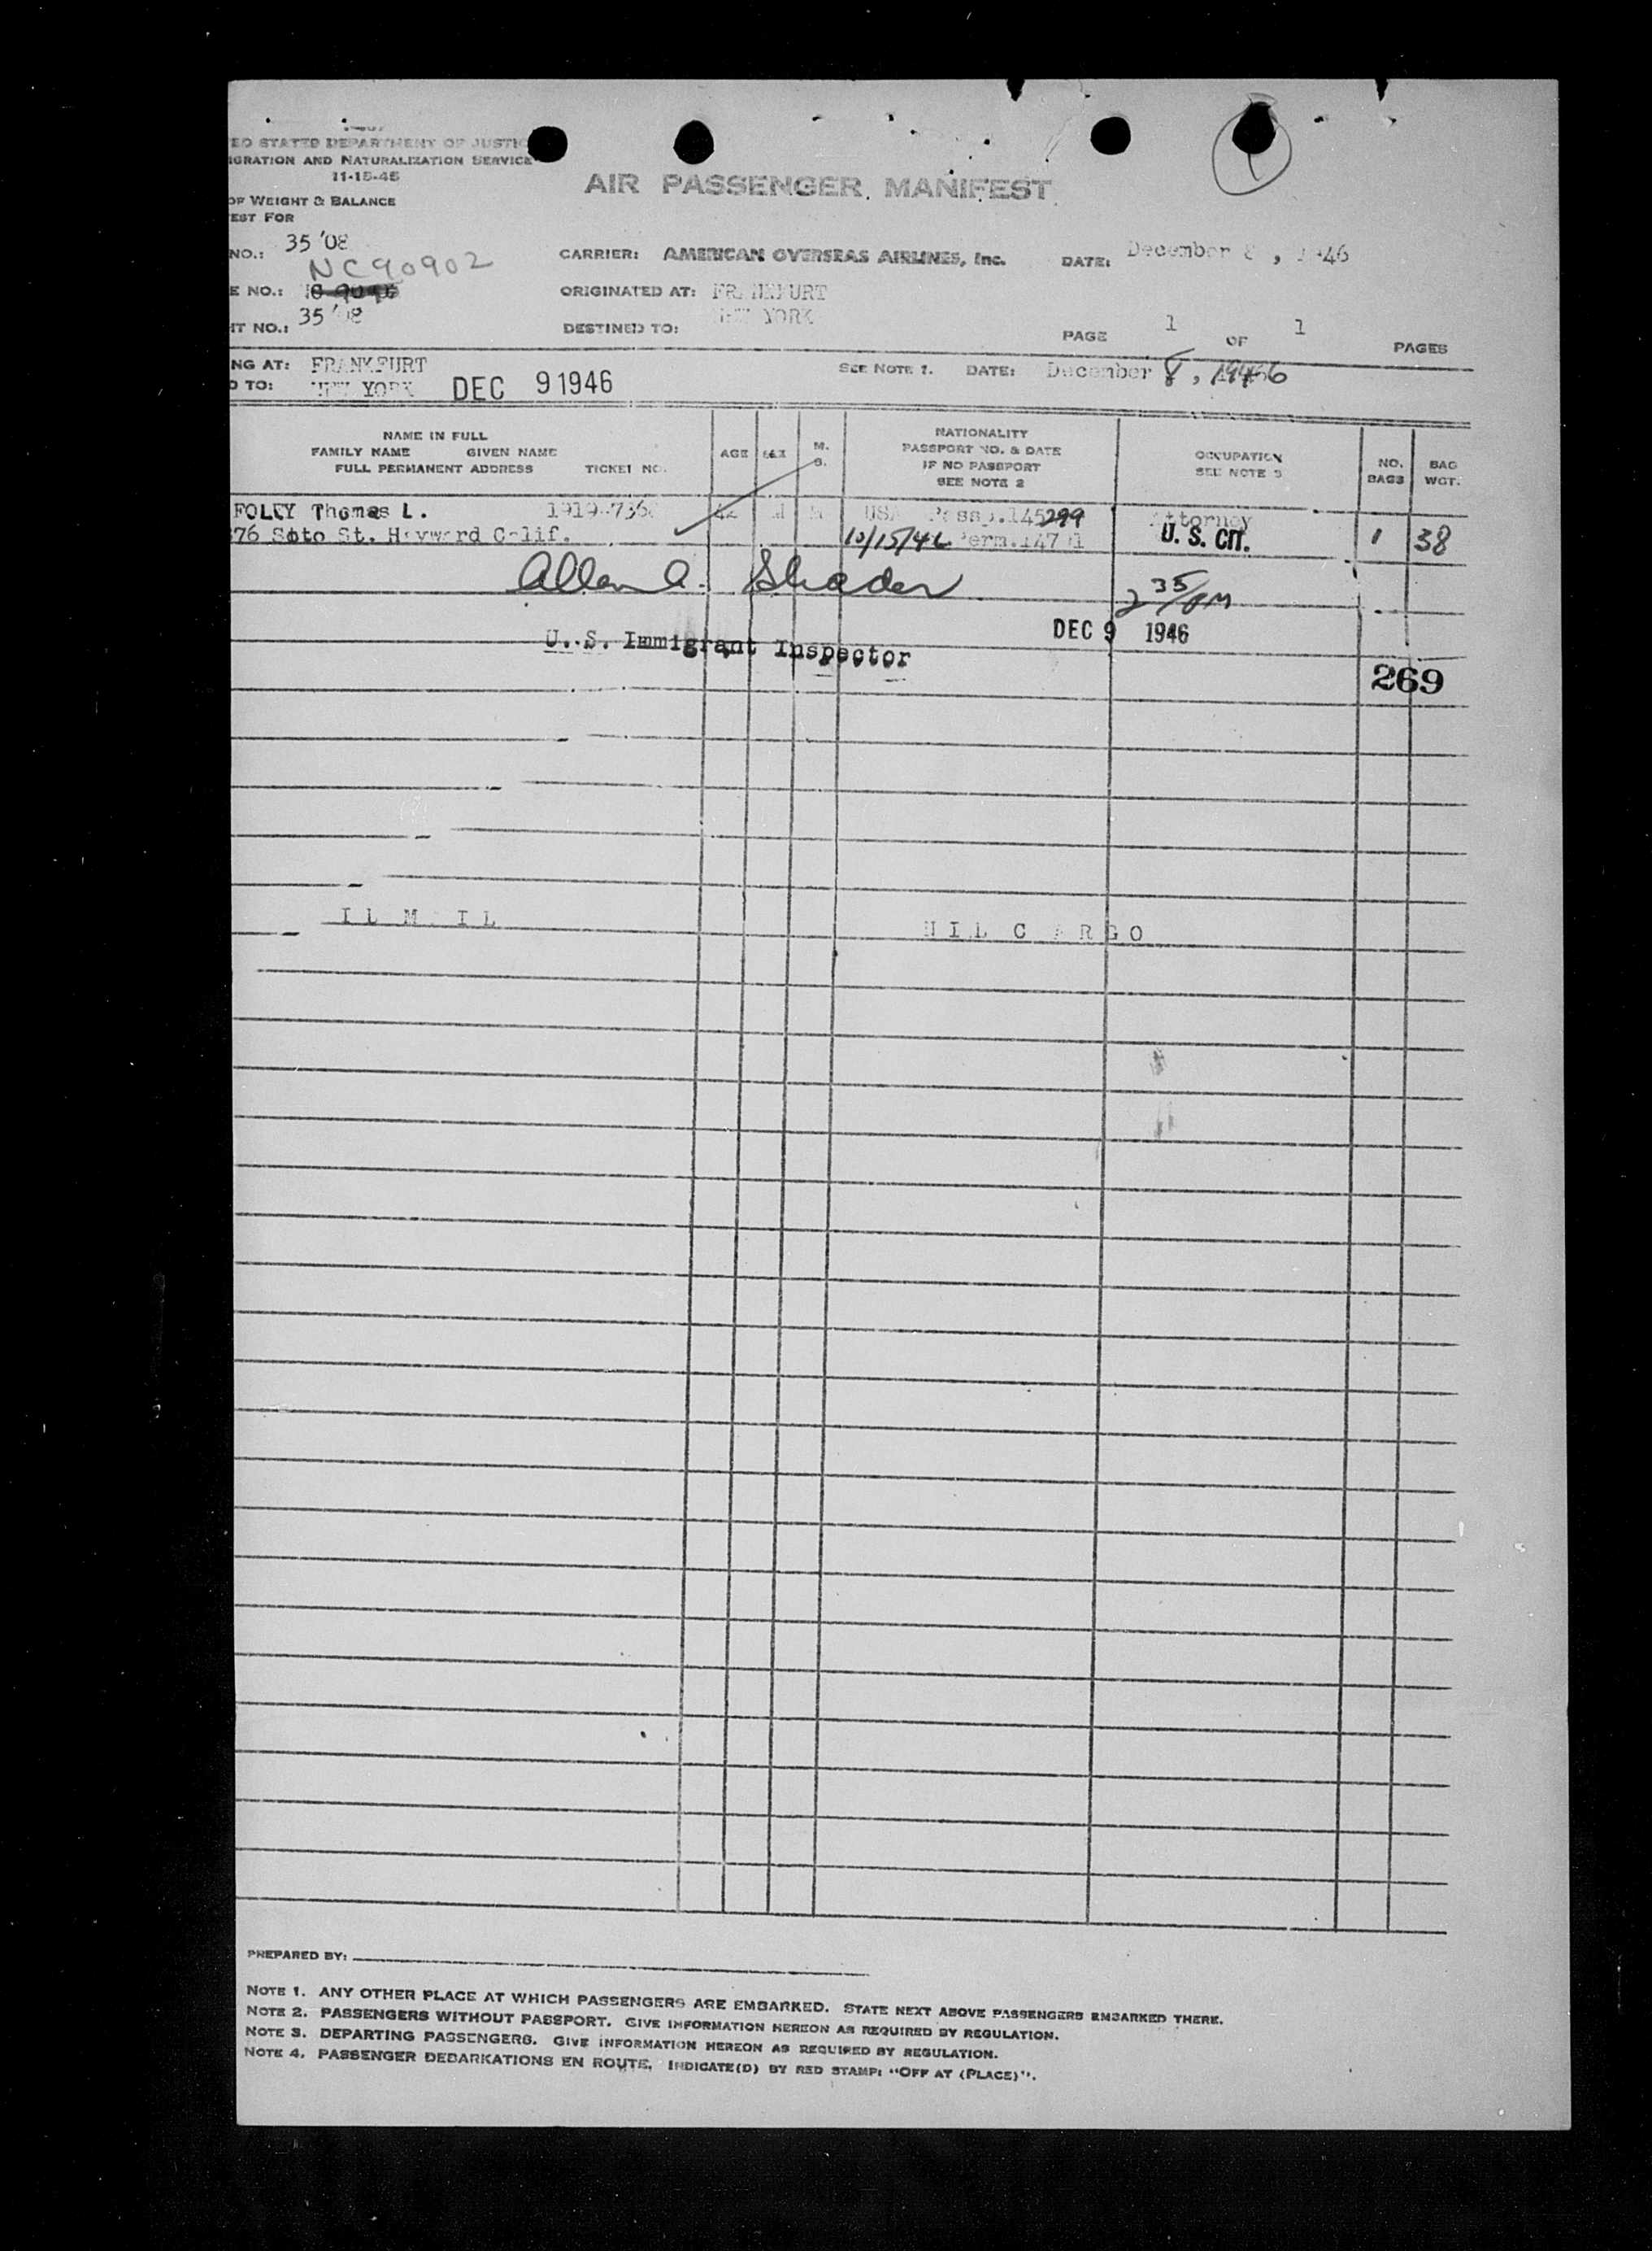 ED STATES DEPARTMENT OF JUSTIC
IGRATION AND NATURALIZATION SERVICE
11-15-45
AIR PASSENGER MANIFEST
OF WEIGHT & BALANCE
EST FOR
NO.: 35 '08 CARRIER: AMERICAN OVERSEAS AIRLINES, Inc. DATE: December 8, 1946
NC90902
E NO.: ORIGINATED AT: FRANKFURT
HT NO.: 35 '08 DESTINED TO: NEW YORK PAGE 1 OF 1 PAGES
NG AT: FRANKFURT SEE NOTE 1. DATE: December 8, 1946
D TO: NEW YORK DEC 9 1946
NAME IN FULL
FAMILY NAME GIVEN NAME
FULL PERMANENT ADDRESS TICKET NO.
AGE SEX M. S.
NATIONALITY
PASSPORT NO. & DATE
IF NO PASSPORT
SEE NOTE 2
OCCUPATION
SEE NOTE 3
NO. BAGS
BAG WGT.
FOLEY Thomas L. 42 M M USA Passp.145299 Attorney
76 Soto St. Hayward Calif. 10/15/46 U. S. CIT. 1 38
Allen A. Shader 2 35/PM
U. S. Immigrant Inspector DEC 9 1946
269
IL M IL NIL C ARGO
PREPARED BY:
NOTE 1. ANY OTHER PLACE AT WHICH PASSENGERS ARE EMBARKED. STATE NEXT ABOVE PASSENGERS EMBARKED THERE.
NOTE 2. PASSENGERS WITHOUT PASSPORT. GIVE INFORMATION HEREON AS REQUIRED BY REGULATION.
NOTE 3. DEPARTING PASSENGERS. GIVE INFORMATION HEREON AS REQUIRED BY REGULATION.
NOTE 4. PASSENGER DEBARKATIONS EN ROUTE. INDICATE(D) BY RED STAMP: "OFF AT (PLACE)".